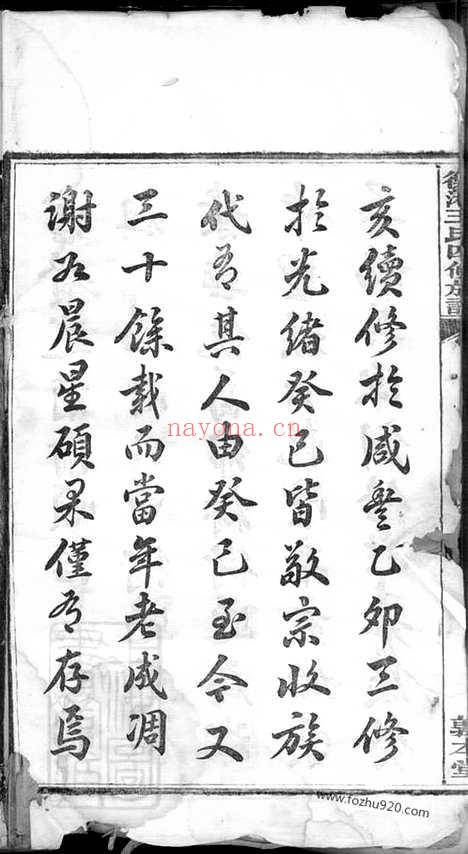 亥續修於咸豐乙卯三修
於光緒癸巳皆敬宗收族
代有其人由癸巳至今又
三十餘載而當年老成凋
謝如晨星碩果僅有存焉
王氏四修族譜
nayona.cn
www.fozhu920.com